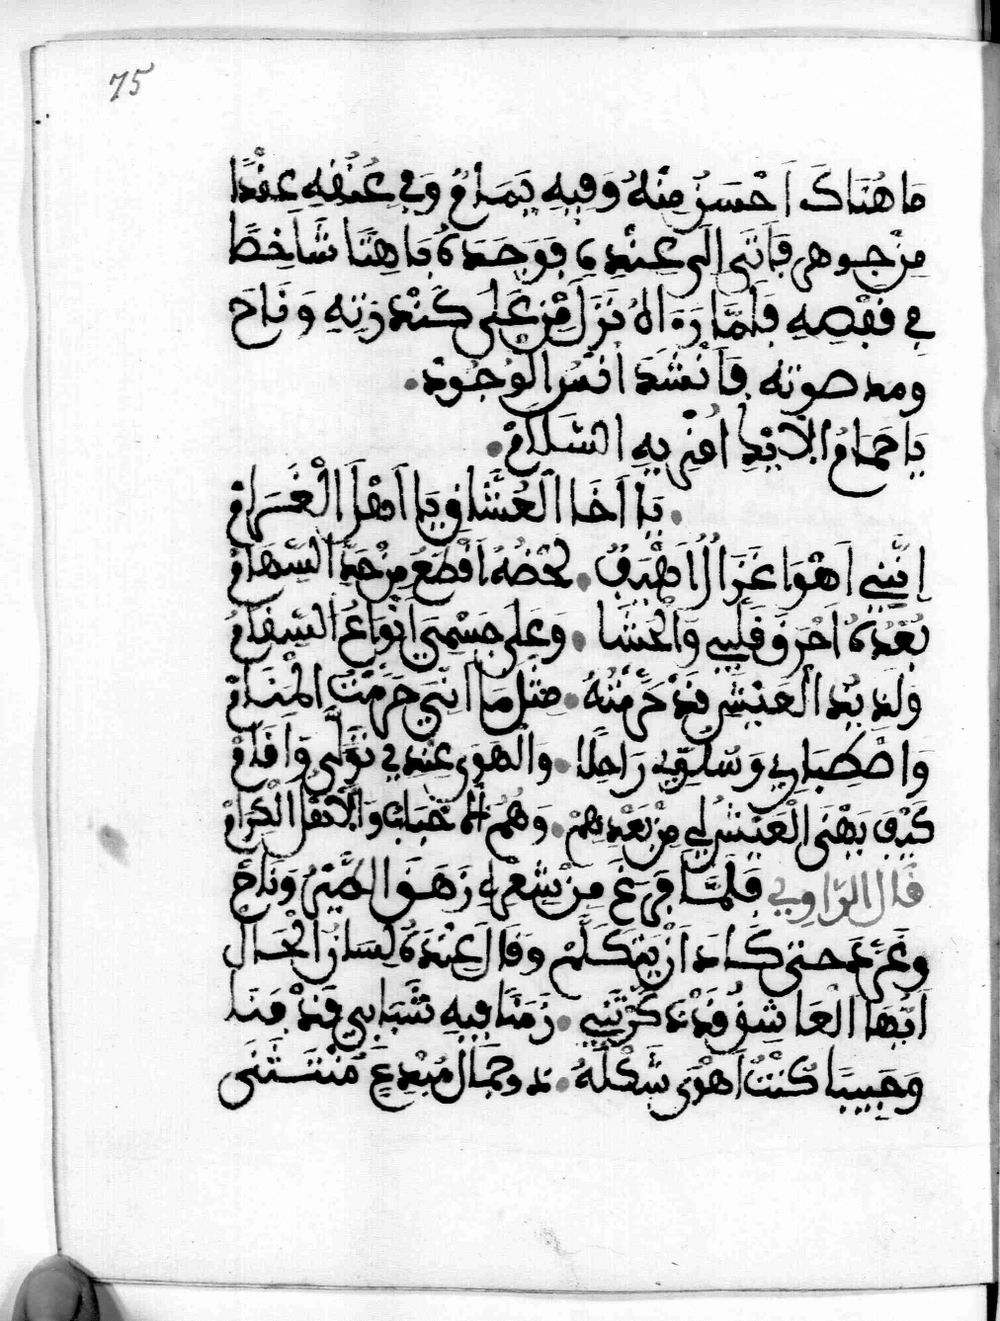 75
مَا هُنَاكَ اَحْسَنُ مِنْهُ وَفِيهِ يَمَامٌ وَفِي عُنُقِهِ عِقْدًا
مِنْ جوهر فَاَتَى اِلَى عِنْدِهِ فَوَجَدَهُ بَاهِتًا شَاخِصًا
فِي قَفَصِهِ فَلَمَّا رَءَاهُ نَزَلَ مِنْ عَلَى كَنْدرَتِهِ وَنَاحَ
ومد صوته فَاَنْشَدَ انسُ الْوُجُود
يَا حَمَامُ الْاَيْكِ اُقْرِيهِ السَّلَامْ
يَا اَخَا الْعُشَّاقِ يَا اَهْلَ الْغَرَامْ
اِنَّنِي اَهْوَا غَزَالًا اَهْيَفُ لَحْضُهُ اَقْطَعُ مِنْ حَدِّ السِّهَامْ
بُعْدُهُ اَحْرَقَ قَلْبِي وَالْحَشَا وَعَلَى جِسْمِيَ اَنْوَاعُ السِّقَامْ
ولديد الْعَيْشِ قَدْ حُرِّمْتُهُ مِثْلَ مَا اَنِّي حَرَمْتُ الْمَنَامْ
وَاصْطِبَارِي وَسُلُوِّي رَاحِلًا وَالْهَوَى عِنْدِي تَوَلَّى وَاَقَامْ
كَيْفَ يَهْنَى الْعَيْشُ لِي مِنْ بَعْدِهِمْ وَهُمُ الْاَحْبَابُ وَالْاَهْلُ الْكِرَامْ
قَالَ الرَّاوِي فَلَمَّا فَرَغَ مِنْ شِعْرِهِ زَهَقَ الطَّيْرُ وَنَاحَ
وَغَرَّدَ حتى كَادَ اَنْ يَتَكَلَّمْ وَقَالَ عِنْدَهُ لِسَانُ الْحَالِ
اَيُّهَا الْعَاشِقُ قَدْ ذَكَّرْتَنِي زَمَنًا فِيهِ شَبَابِي قَدْ فَنَا
وَحَبِيبًا كُنْتُ اَهْوَى شَكْلَهُ ذو جَمَال مُبْدِعٍ مُنْتَسَنَى